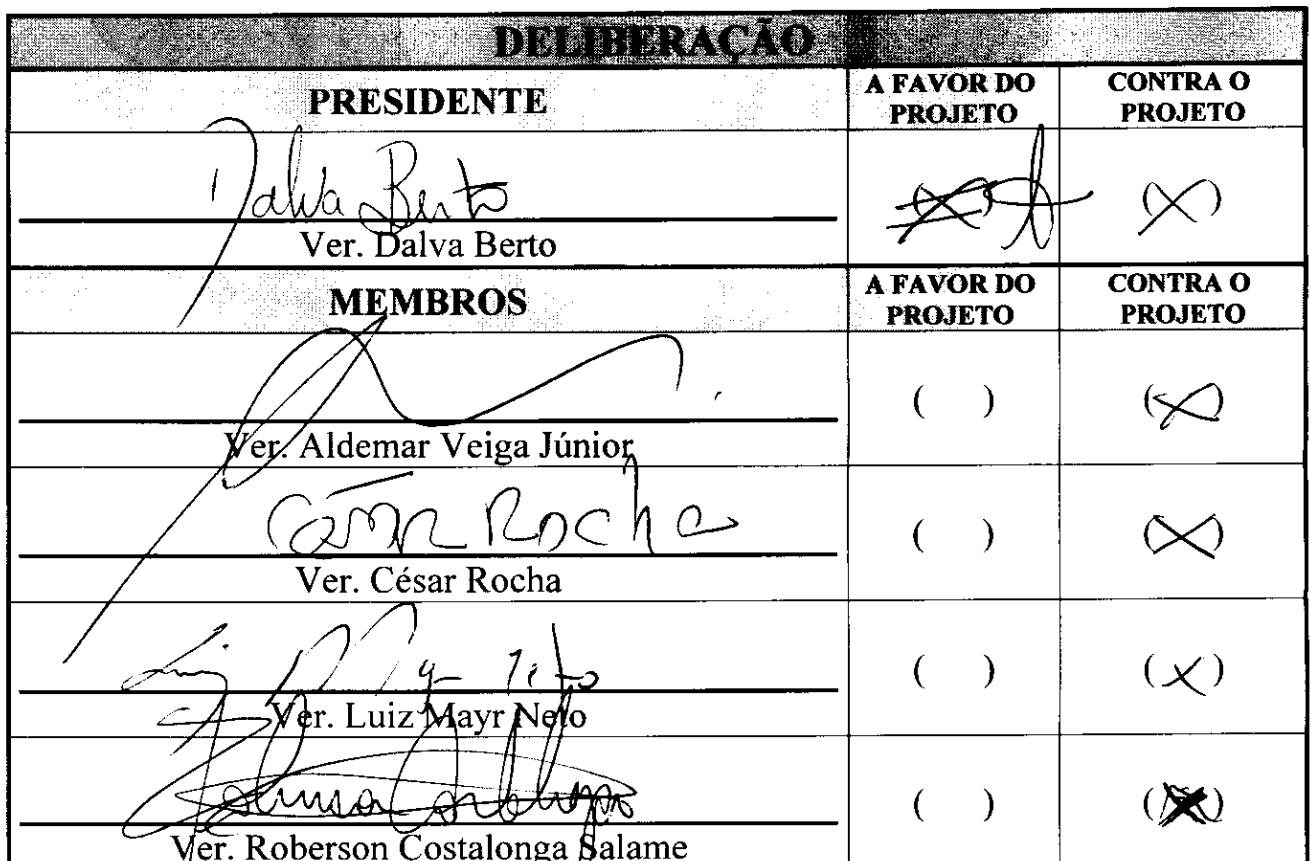 DELIBERAÇÃO
PRESIDENTE A FAVOR DO PROJETO CONTRA O PROJETO
Dalva Berto (X) (X)
Ver. Dalva Berto
MEMBROS A FAVOR DO PROJETO CONTRA O PROJETO
( ) (X)
Ver. Aldemar Veiga Júnior
César Rocha ( ) (X)
Ver. César Rocha
( ) (X)
Ver. Luiz Mayr Neto
( ) (X)
Ver. Roberson Costalonga Salame